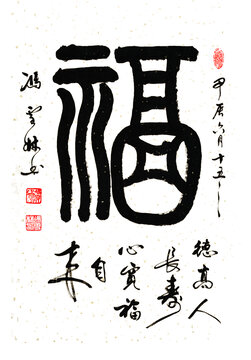 福
甲辰六月十五
德高人
長壽
心寬福
自
来
馮雪林书